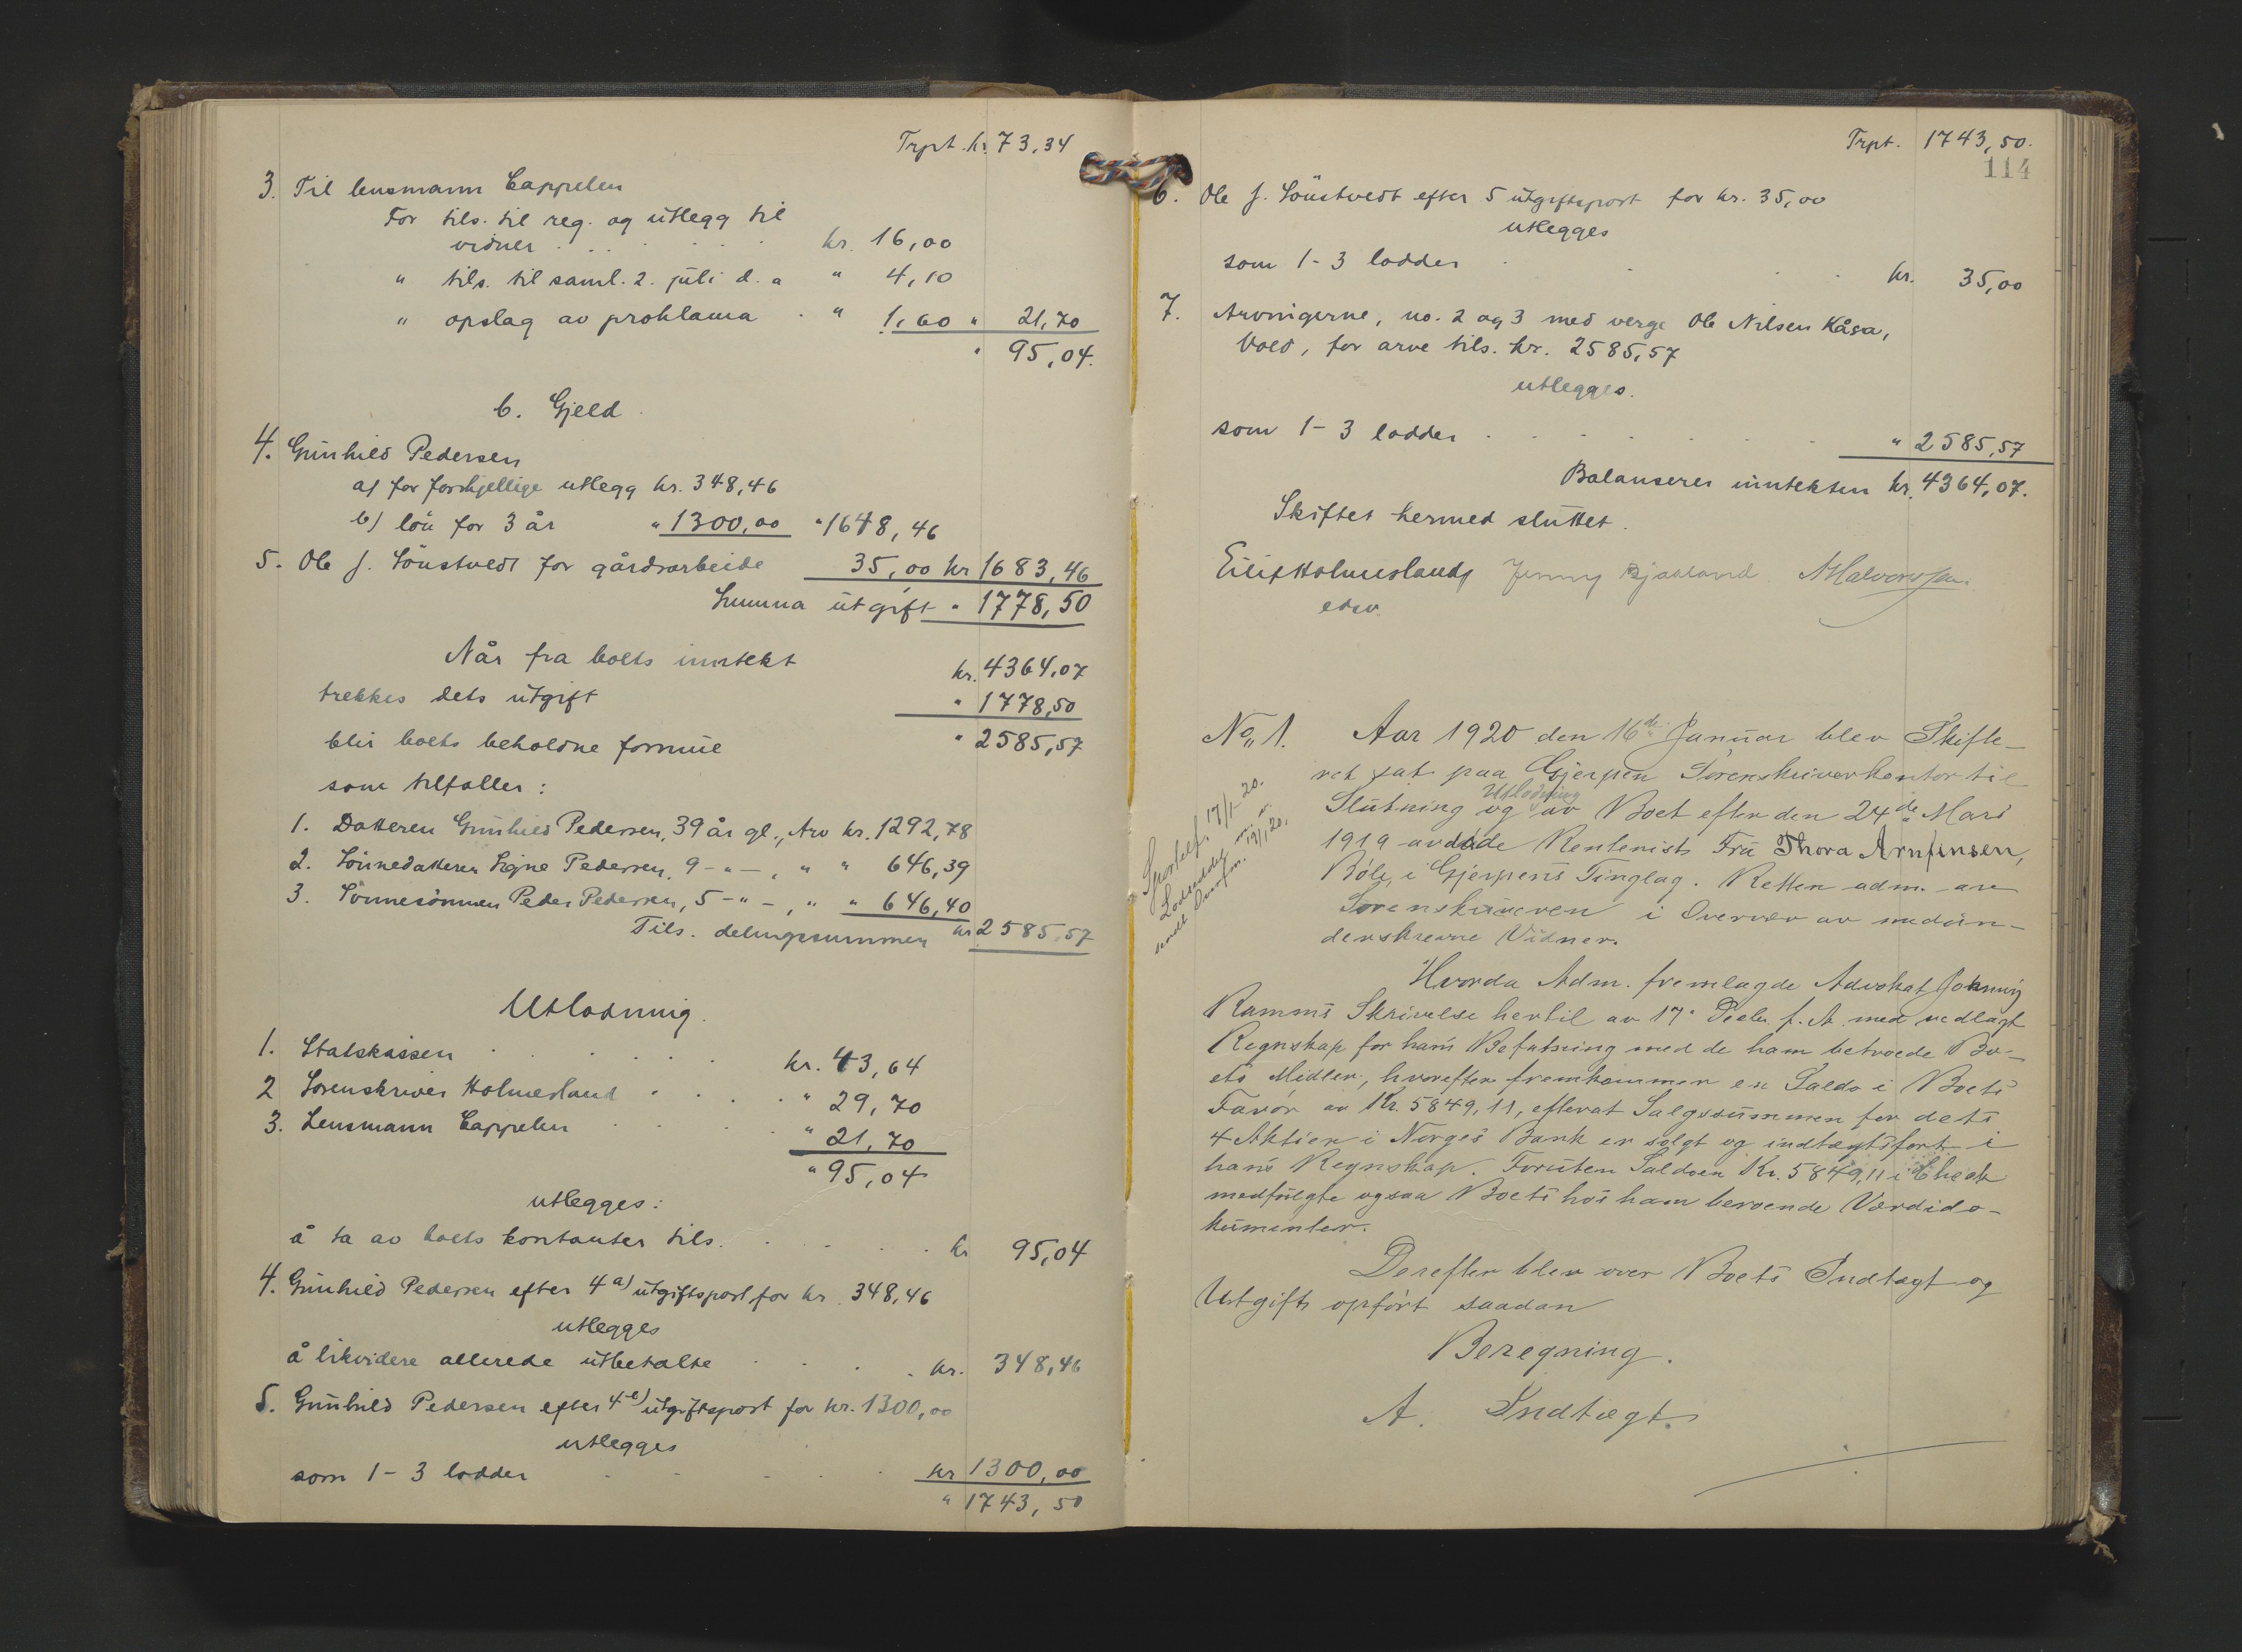 Trpt. kr. 73,34
3. Til lensmann Cappelen
For tils. til reg. og utlegg til
vidner . . . kr. 16,00
" tils. til saml. 2. juli d. a " 4,10
" opslag av proklama . " 1,60 " 21,70
" 95,04.
b. Gjeld
4. Gunhild Pedersen
a) for forskjellige utlegg kr. 348,46
b) løn for 3 år " 1300,00 " 1648,46
5. Ole J. Sönstvedt for gårdsarbeide 35,00 kr 1683,46
Summa utgift " 1778,50
Når fra boets inntekt kr. 4364,07
trekkes dets utgift " 1778,50
blir boets beholdne formue " 2585,57
som tilfaller:
1. Datteren Gunhild Pedersen, 39 år gl., Arv kr. 1292,78
2. Sönnedatteren Signe Pedersen, 9 - " - , " " 646,39
3. Sönnesönnen Peder Pedersen, 5 - " - , " " 646,40
Tils. delingssummen kr 2585,57
Utlodning.
1. Statskassen . . . kr. 43,64
2 Sorenskriver Holmesland . . . " 29,70
3. Lensmann Cappelen . . . " 21,70
" 95,04
utlegges:
å ta av boets kontanter tils. . . . kr 95,04
4. Gunhild Pedersen efter 4 a) utgiftspost for kr. 348,46
utlegges
å likvidere allerede utbetalte . . . kr. 348,46
5. Gunhild Pedersen efter 4 b) utgiftspost for kr. 1300,00
utlegges
som 1-3 lodder . . . kr 1300,00
" 1743,50
Trpt. 1743,50.
114
6. Ole J. Sönstvedt efter 5 utgiftspost for kr. 35,00
utlegges
som 1-3 lodder . . . kr. 35,00
7. Arvingerne, no. 2 og 3 med verge Ole Nilsen Kåsa,
Vold, for arve tils. kr. 2585,57
utlegges.
som 1-3 lodder . . . " 2585,57
Balanserer inntekten kr. 4364,07.
Skiftet hermed sluttet.
Eilif Holmesland Jenny Bjaaland A Halvorsen
edsv.
No. 1. Aar 1920 den 16de Januar blev Skifte-
ret sat paa Gjerpen Sorenskriverkontor til
Slutning og Utlodning av Boet efter den 24de Mars
1919 avdöde Rentenist Fru Thora Arnfinsen,
Böle, i Gjerpens Tinglag. Retten adm. av
Sorenskriveren i Overvær av medun-
derskrevne Vidner.
Sportelf. 17/1-20.
Loddseddel m. v.
sendt 19/1 20.
Hvorda Adm. fremlagde Advokat Johnny
Ramms Skrivelse hertil av 17. Decbr. f. A. med vedlagt
Regnskap for hans Befatning med de ham betroede Bo-
ets Midler, hvorefter fremkommer en Saldo i Boets
Favör av Kr. 5849,11, efterat Salgssummen for dets
4 Aktier i Norges Bank er solgt og indtægtsfört i
hans Regnskap. Foruten Saldoen Kr. 5849,11 i Check
medfölgte ogsaa Boets hos ham beroende Værdido-
kumenter.
Derefter blev over Boets Indtægt og
Utgift opfört saadan
Beregning.
A. Indtægt.